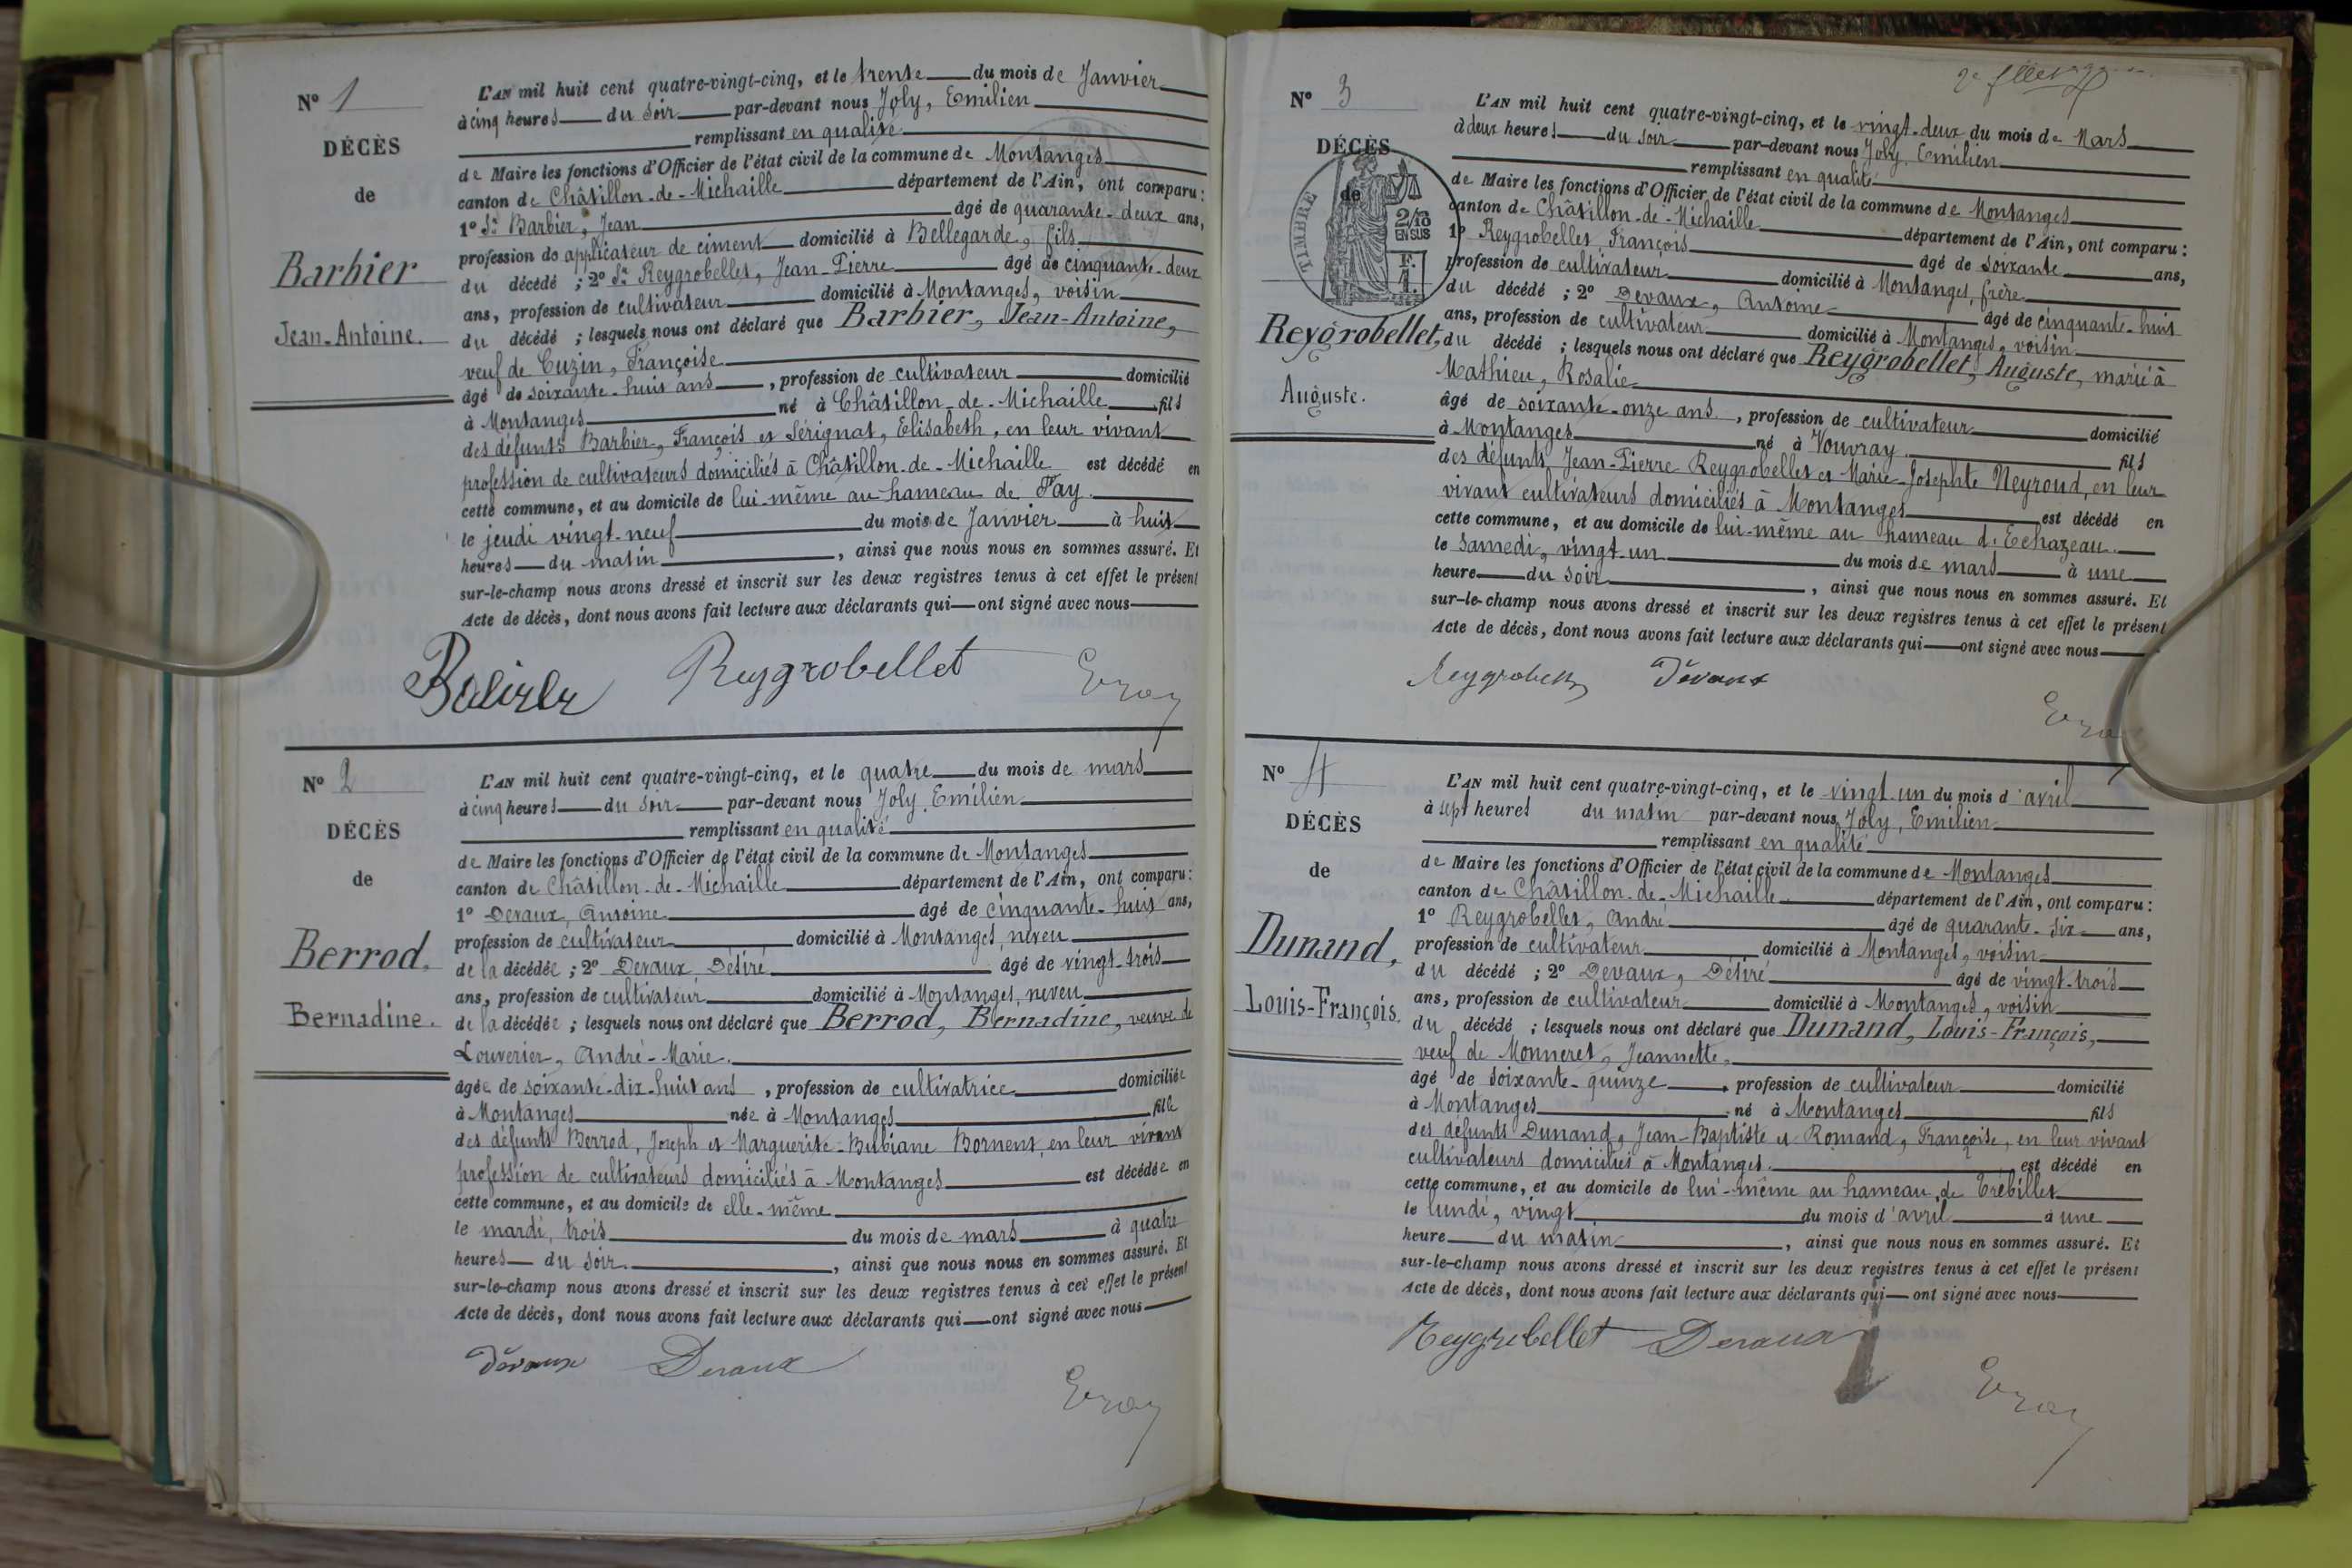 N° 1
DÉCÈS
de
Barbier
Jean-Antoine.
L'AN mil huit cent quatre-vingt-cinq, et le trente du mois de Janvier
à cinq heures du soir par-devant nous Joly, Emilien
remplissant en qualité
de Maire les fonctions d'Officier de l'état civil de la commune de Montanges
canton de Châtillon-de-Michaille département de l'Ain, ont comparu :
1° Sr Barbier, Jean âgé de quarante-deux ans,
profession de applicateur de ciment domicilié à Bellegarde, fils
du décédé ; 2° Sr Reygrobellet, Jean-Pierre âgé de cinquante-deux
ans, profession de cultivateur domicilié à Montanges, voisin
du décédé ; lesquels nous ont déclaré que Barbier, Jean-Antoine,
veuf de Cuzin, Françoise
âgé de soixante-huit ans, profession de cultivateur domicilié
à Montanges né à Châtillon-de-Michaille fils
des défunts Barbier, François et Sérignat, Elisabeth, en leur vivant
profession de cultivateurs domiciliés à Châtillon-de-Michaille est décédé en
cette commune, et au domicile de lui-même au hameau de Fay.
le jeudi vingt-neuf du mois de Janvier à huit
heures du matin, ainsi que nous nous en sommes assuré. Et
sur-le-champ nous avons dressé et inscrit sur les deux registres tenus à cet effet le présent
Acte de décès, dont nous avons fait lecture aux déclarants qui ont signé avec nous
Reygrobellet
N° 2
DÉCÈS
de
Berrod.
Bernadine.
L'AN mil huit cent quatre-vingt-cinq, et le quatre du mois de mars
à cinq heures du soir par-devant nous Joly, Emilien
remplissant en qualité
de Maire les fonctions d'Officier de l'état civil de la commune de Montanges
canton de Châtillon-de-Michaille département de l'Ain, ont comparu :
1° Devaux, Antoine âgé de cinquante-huit ans,
profession de cultivateur domicilié à Montanges, neveu
de la décédée ; 2° Devaux, Désiré âgé de vingt-trois
ans, profession de cultivateur domicilié à Montanges, neveu
de la décédée ; lesquels nous ont déclaré que Berrod, Bernadine, veuve de
Louverier, André-Marie.
âgée de soixante-dix-huit ans, profession de cultivatrice domiciliée
à Montanges née à Montanges fille
des défunts Berrod, Joseph et Marguerite-Bubiane Bornent, en leur vivant
profession de cultivateurs domiciliés à Montanges est décédée en
cette commune, et au domicile de elle-même
le mardi, trois du mois de mars à quatre
heures du soir., ainsi que nous nous en sommes assuré. Et
sur-le-champ nous avons dressé et inscrit sur les deux registres tenus à cet effet le présent
Acte de décès, dont nous avons fait lecture aux déclarants qui ont signé avec nous
Dévaux Devaux
N° 3
DÉCÈS
de
TIMBRE
2/10
EN SUS
F.
1.
Reygrobellet,
Auguste.
L'AN mil huit cent quatre-vingt-cinq, et le vingt-deux du mois de Mars
à deux heures du soir par-devant nous Joly, Emilien
remplissant en qualité
de Maire les fonctions d'Officier de l'état civil de la commune de Montanges
canton de Châtillon-de-Michaille département de l'Ain, ont comparu :
1° Reygrobellet, François âgé de soixante ans,
profession de cultivateur domicilié à Montanges, frère
du décédé ; 2° Devaux, Antoine âgé de cinquante-huit
ans, profession de cultivateur domicilié à Montanges, voisin
du décédé ; lesquels nous ont déclaré que Reygrobellet, Auguste, marié à
Mathieu, Rosalie
âgé de soixante-onze ans, profession de cultivateur domicilié
à Montanges né à Vouvray fils
des défunts Jean-Pierre Reygrobellet et Marie-Josephte Neyroud, en leur
vivant cultivateurs domiciliés à Montanges est décédé en
cette commune, et au domicile de lui-même au hameau d'Echazeau.
le samedi, vingt-un du mois de mars à une
heure du soir, ainsi que nous nous en sommes assuré. Et
sur-le-champ nous avons dressé et inscrit sur les deux registres tenus à cet effet le présent
Acte de décès, dont nous avons fait lecture aux déclarants qui ont signé avec nous
Dévaux
N° 4
DÉCÈS
de
Dunand,
Louis-François.
L'AN mil huit cent quatre-vingt-cinq, et le vingt un du mois d'avril
à sept heures du matin par-devant nous Joly, Emilien
remplissant en qualité
de Maire les fonctions d'Officier de l'état civil de la commune de Montanges
canton de Châtillon-de-Michaille département de l'Ain, ont comparu :
1° Reygrobellet, André âgé de quarante-six ans,
profession de cultivateur domicilié à Montanges, voisin
du décédé ; 2° Devaux, Désiré âgé de vingt-trois
ans, profession de cultivateur domicilié à Montanges, voisin
du décédé ; lesquels nous ont déclaré que Dunand, Louis-François,
veuf de Monneret, Jeannette,
âgé de soixante-quinze, profession de cultivateur domicilié
à Montanges né à Montanges fils
des défunts Dunand, Jean-Baptiste et Romand, Françoise, en leur vivant
cultivateurs domiciliés à Montanges. est décédé en
cette commune, et au domicile de lui-même au hameau de Trébillet
le lundi, vingt du mois d'avril à une
heure du matin, ainsi que nous nous en sommes assuré. Et
sur-le-champ nous avons dressé et inscrit sur les deux registres tenus à cet effet le présent
Acte de décès, dont nous avons fait lecture aux déclarants qui ont signé avec nous
Reygrobellet Devaux